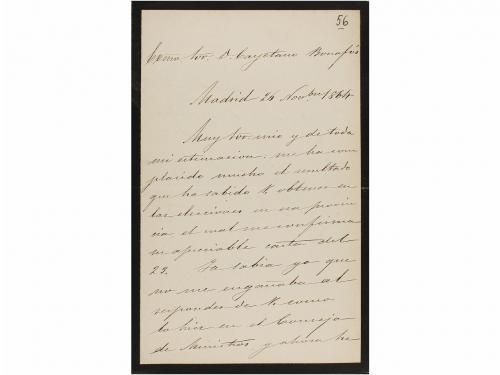 56
Excmo Sor. D. Cayetano Bonafós
Madrid 24 Novbre 1864
Muy Sor mio y de toda
mi estimacion: me ha com
placido mucho el resultado
que ha sabido V. obtener en
las elecciones en esa provin
cia el cual me confirma
su apreciable carta del
22. Ya sabia yo que
no me engañaba al
responder de V. como
lo hice en el Consejo
de Ministros y ahora he